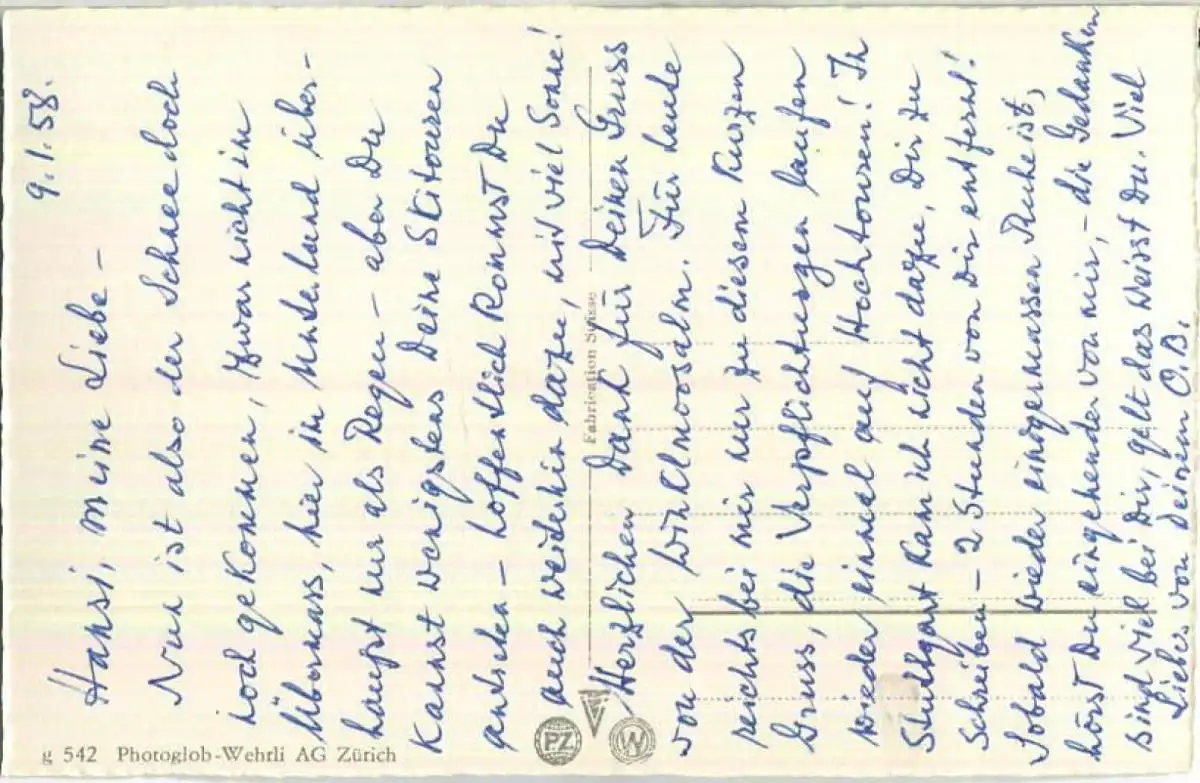 9.1.58.
Hansi, meine Liebe –
Nun ist also der Schnee doch
noch gekommen, zwar nicht im
Übermass, hier im Unterland über-
haupt nur als Regen – aber Du
kannst wenigstens Deine Skitouren
– hoffentlich kommst Du
auch weiterhin dazu, mit viel Sonne!
Herzlichen Dank für Deinen Gruss
von der Winklmoosalm. Für heute
reichts bei mir nur zu diesem kurzen
Gruss, die Verpflichtungen laufen
wieder einmal auf Hochtouren! In
Stuttgart kam ich nicht dazu, Dir zu
schreiben – 2 Stunden von Dir entfernt!
Sobald wieder einigermassen Ruhe ist,
hörst Du eingehender von mir, – die Gedanken
sind viel bei Dir, gell das weisst Du. Viel
Liebes von Deinem O.B.
Fabrication Suisse
PZ
W
g 542 Photoglob-Wehrli AG Zürich